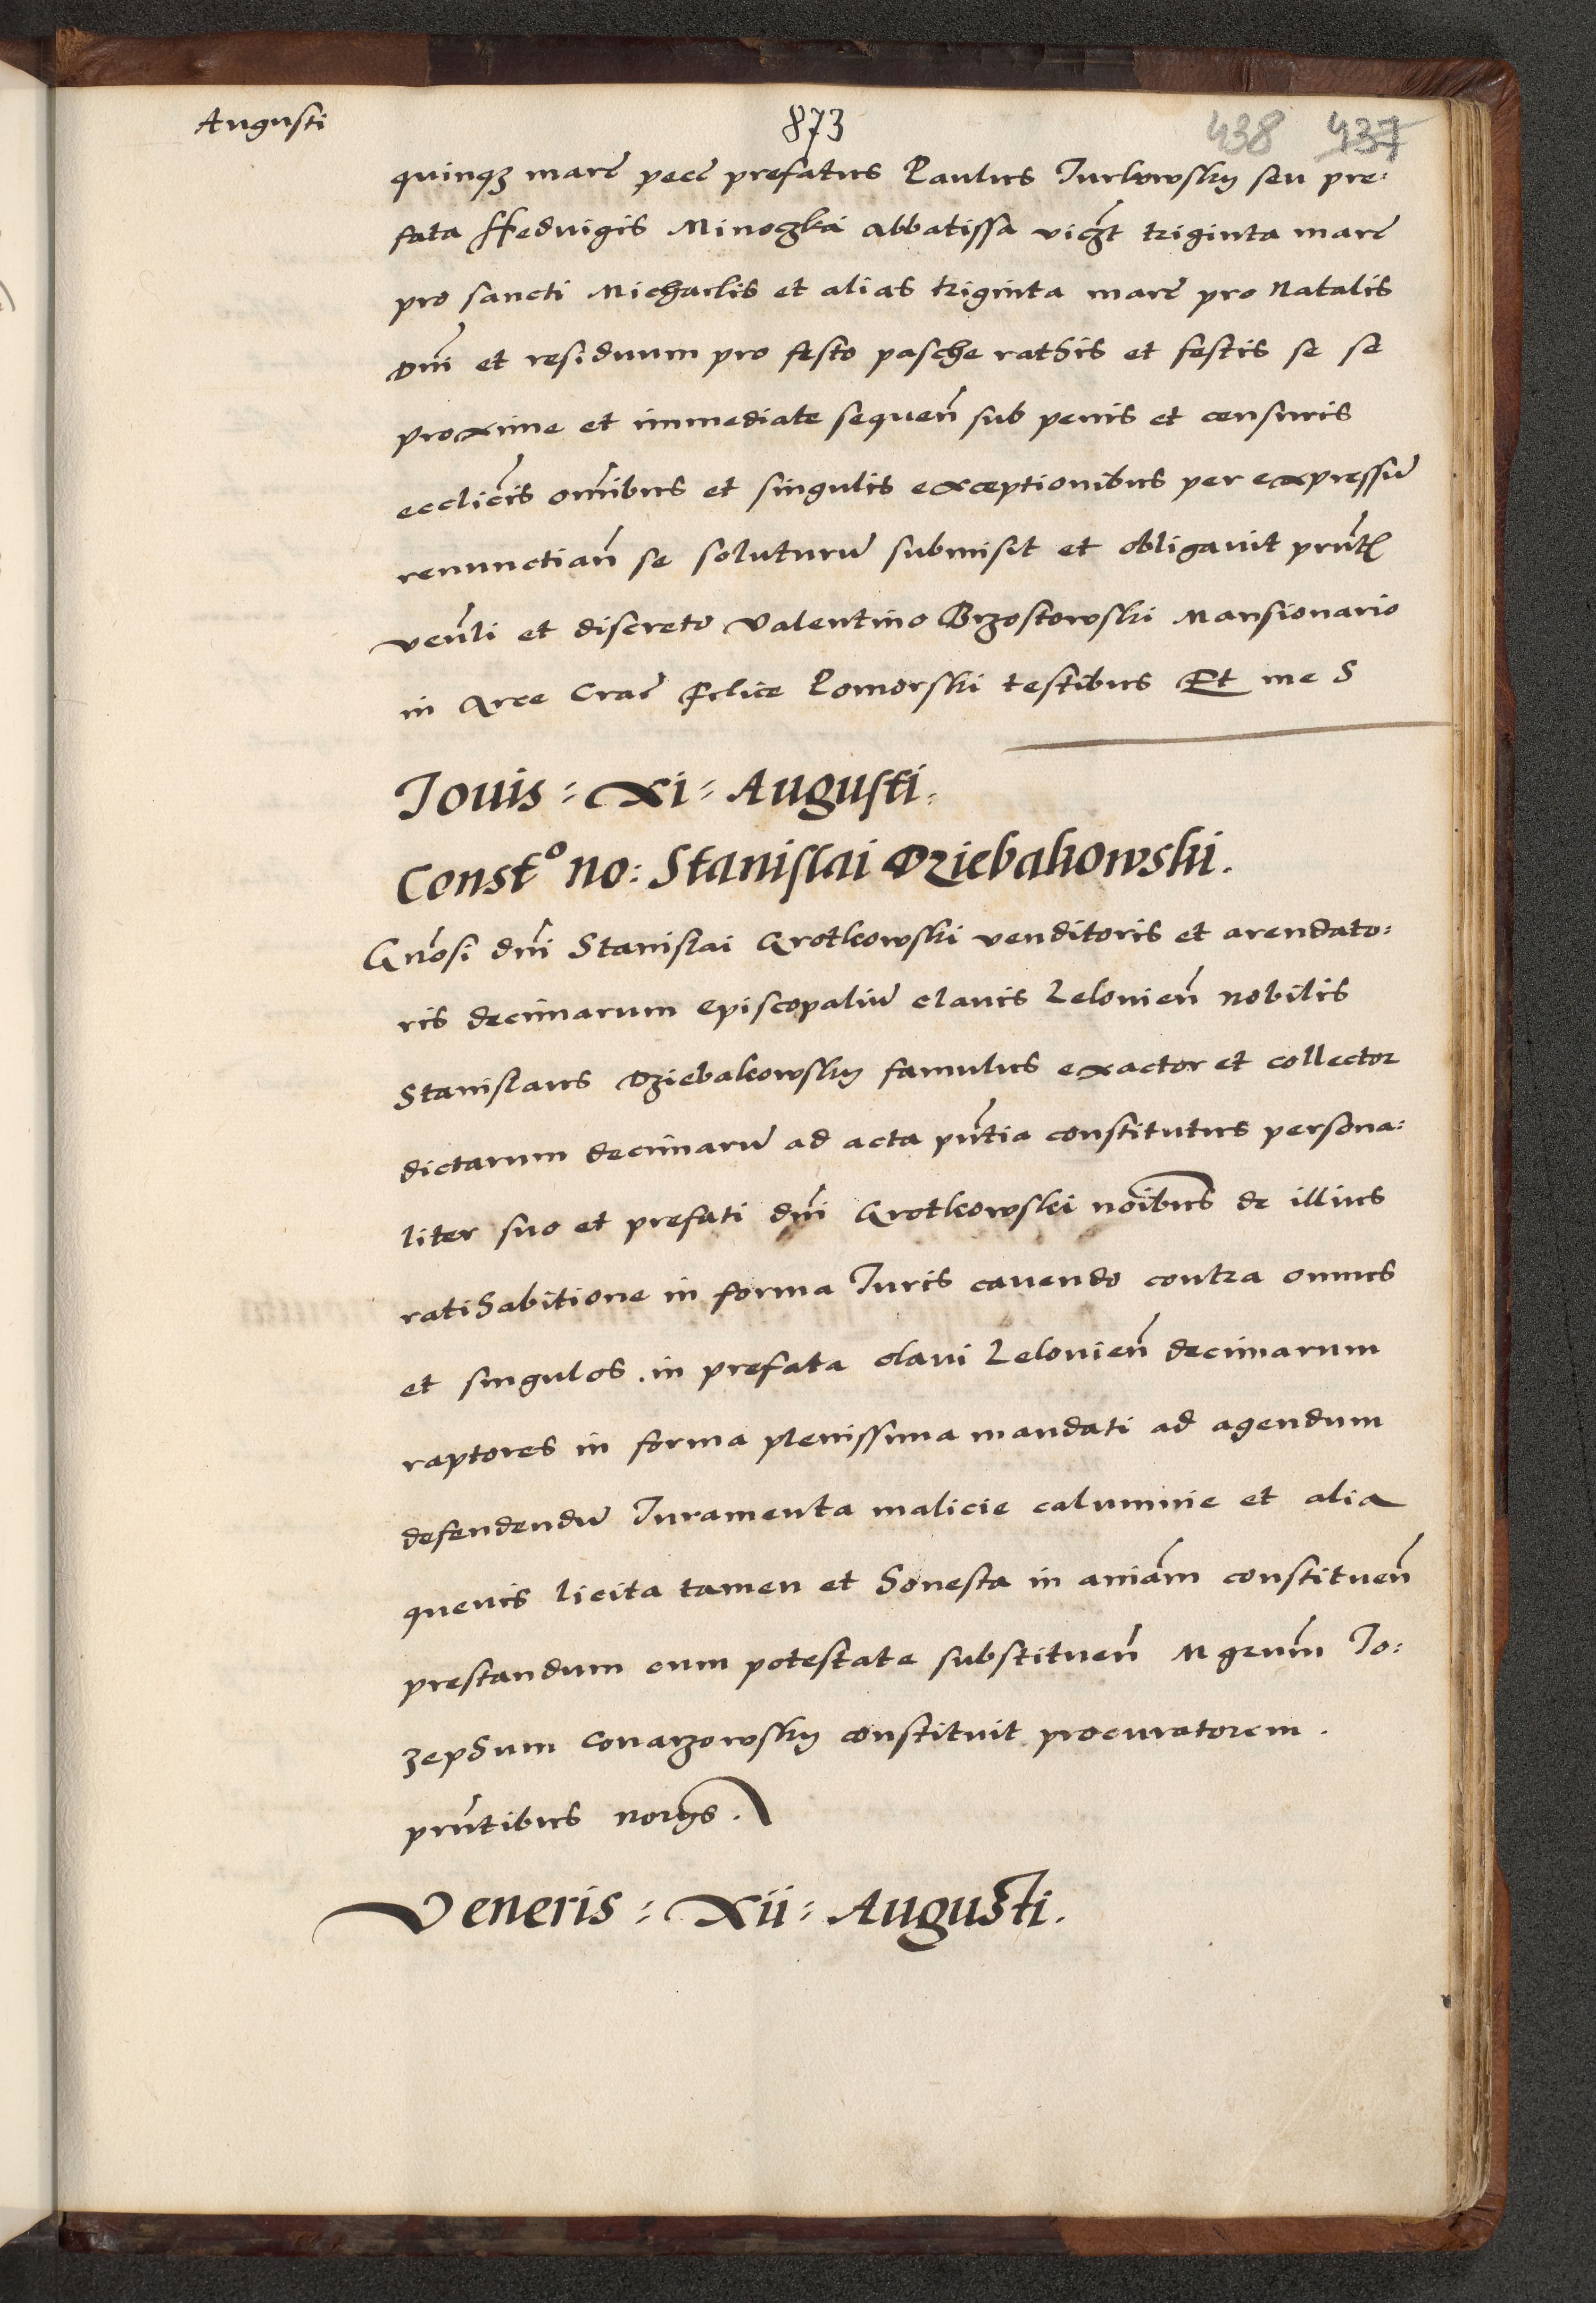 Augusti
873
438 437
quinqȝ marc̃ pecc̃ prefatus Paulus Jurkowsky seu pre:
fata Hedvigis Minoczka abbatissa triginta marc̃
pro sancti Michaelis et alias triginta marc̃ pro Natalis
Dñi et residuum pro festo pasche rathis et festis se se
proxime et immediate sequeñ sub penis et censuris
eccl̃icis om̃ibus et singulis exceptionibus per expressũ
renunctiañ se soluturũ submisit et obligavit prñt̃
veñli et discreto Valentino Brzostowski Mansionario
in Arce Crac̃ Felice Pomorski testibus Et me S
Jovis : xi : Augusti.
Const° No: Stanislai Dziebakowski.
Gñosi dñi Stanislai Grotkowski venditoris et arendato:
ris decimarum episcopaliũ clavis Lelovieñ nobilis
Stanislaus Dziebakowsky famulus exactor et collector
dictarum decimarũ ad acta pñtia constitutus persona:
liter suo et prefati dñi Grotkowski noĩbus de illius
ratihabitione in forma Juris cavendo contra omnes
et singulos in prefata clavi Lelovieñ decimarum
raptores in forma plenissima mandati ad agendum
defendendũ Juramenta malicie calumnie et alia
quevis licita tamen et honesta in aniãm constitueñ
prestandum cum potestate substitueñ Mgrũm Jo:
zephum Conarzowsky constituit procuratorem.
prñtibus norys.
Veneris : xii : Augusti.